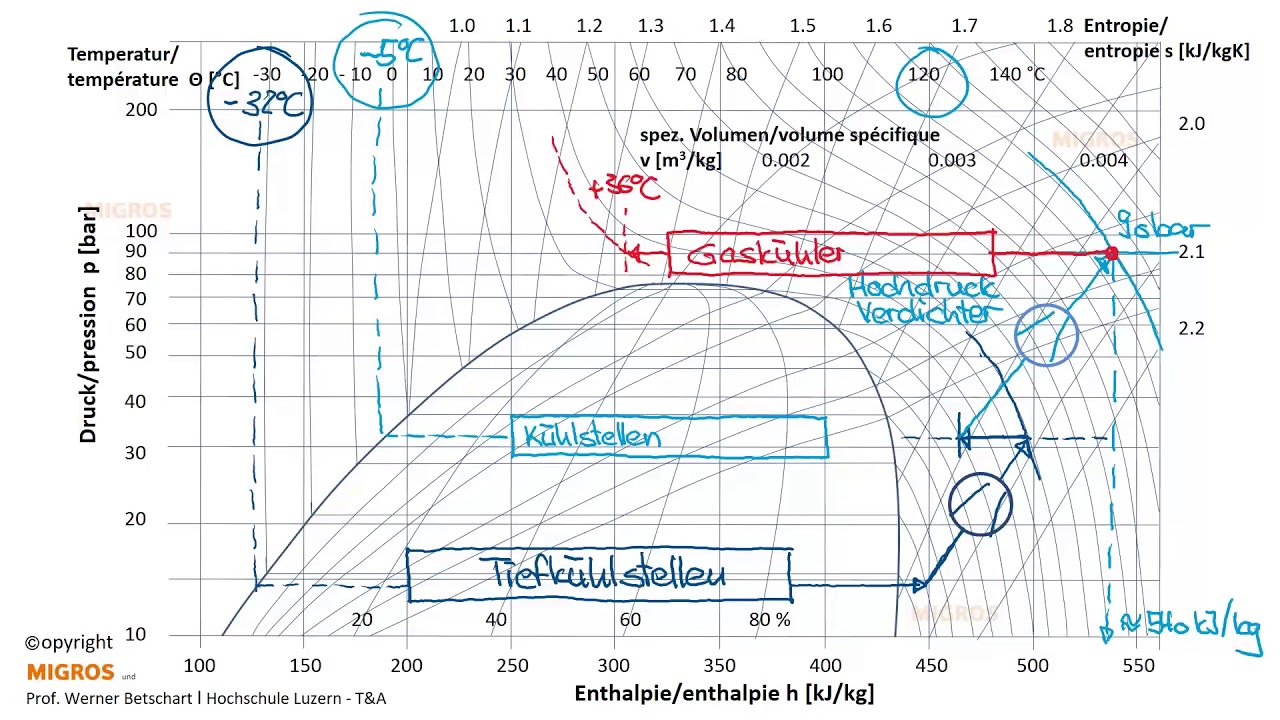 1.0 1.1 1.2 1.3 1.4 1.5 1.6 1.7 1.8 Entropie/
entropie s [kJ/kgK]
Temperatur/
température Θ [°C] -30 -20 -10 0 10 20 30 40 50 60 70 80 100 120 140 °C
-5°C
-32°C
200
spez. Volumen/volume spécifique
v [m³/kg] 0.002 0.003 0.004
2.0
MIGROS
MIGROS
+36°C
90bar
100
90
80
70
60
50
40
30
20
10
2.1
2.2
Gaskühler
Hochdruck
Verdichter
Druck/pression p [bar]
Kühlstellen
Tiefkühlstellen
20 40 60 80 %
MIGROS
≈ 540 kJ/kg
100 150 200 250 300 350 400 450 500 550
Enthalpie/enthalpie h [kJ/kg]
©opyright
MIGROS und
Prof. Werner Betschart l Hochschule Luzern - T&A